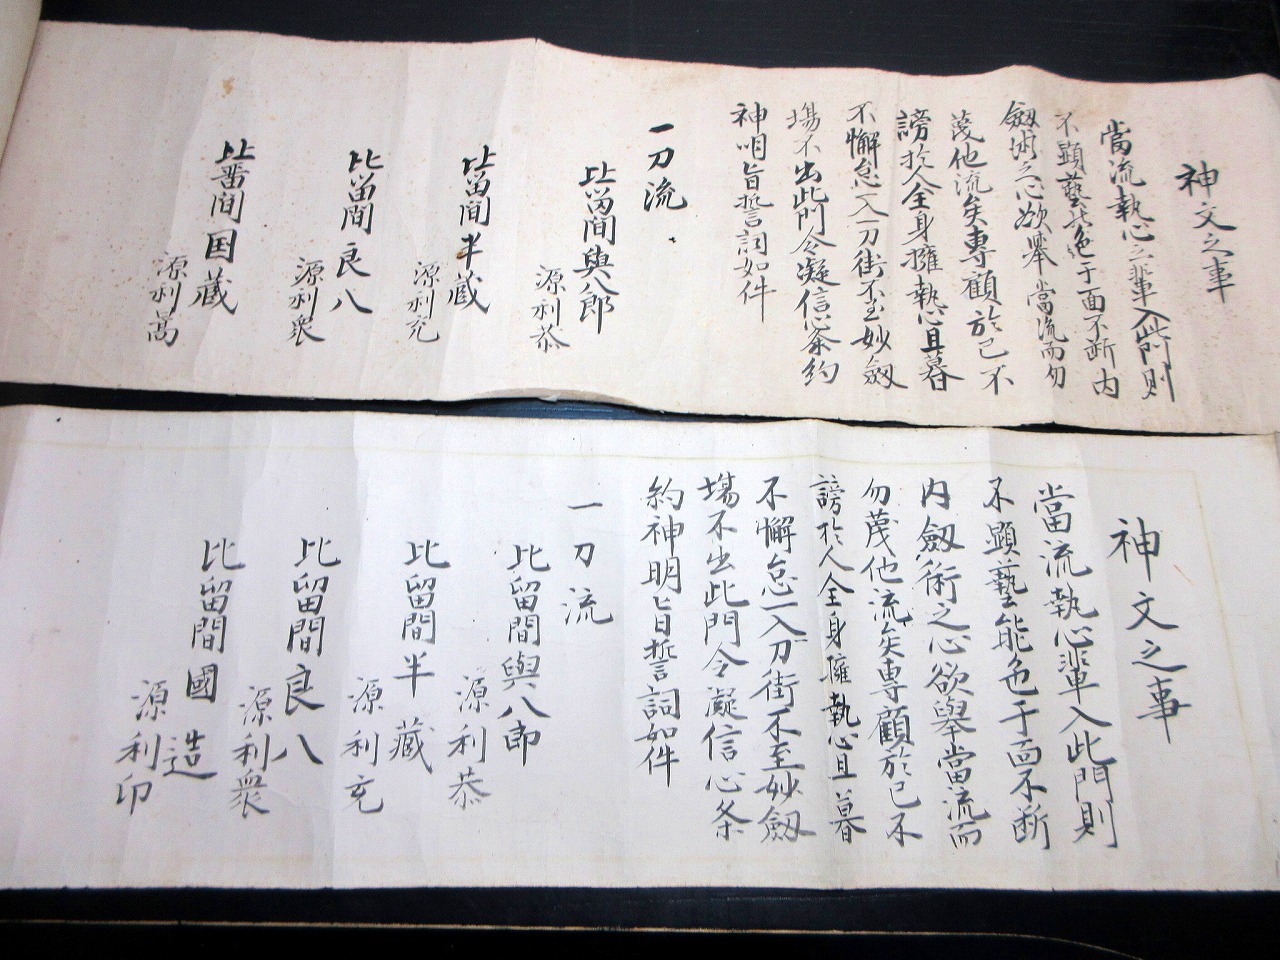 神文之事
當流執心之輩入此門則
不顕藝其色于面不断内
劔術之心欲舉當流而勿
蔑他流矣専顧於己不
謗於人全身擁執心且暮
不懈怠一入刀街不至妙劔
場不出此門令凝信心条約
神明旨誓詞如件
一刀流
比留間與八郎
源利恭
比留間半蔵
源利充
比留間良八
源利衆
比留間国蔵
源利
神文之事
當流執心輩入此門則
不顕藝能色于面不断
内劔術之心欲舉當流而
勿蔑他流矣専顧於己不
謗於人全身擁執心且暮
不懈怠一入刀街不至妙劔
場不出此門令凝信心条
約神明旨誓詞如件
一刀流
比留間與八郎
源利恭
比留間半蔵
源利充
比留間良八
源利衆
比留間國造
源利印